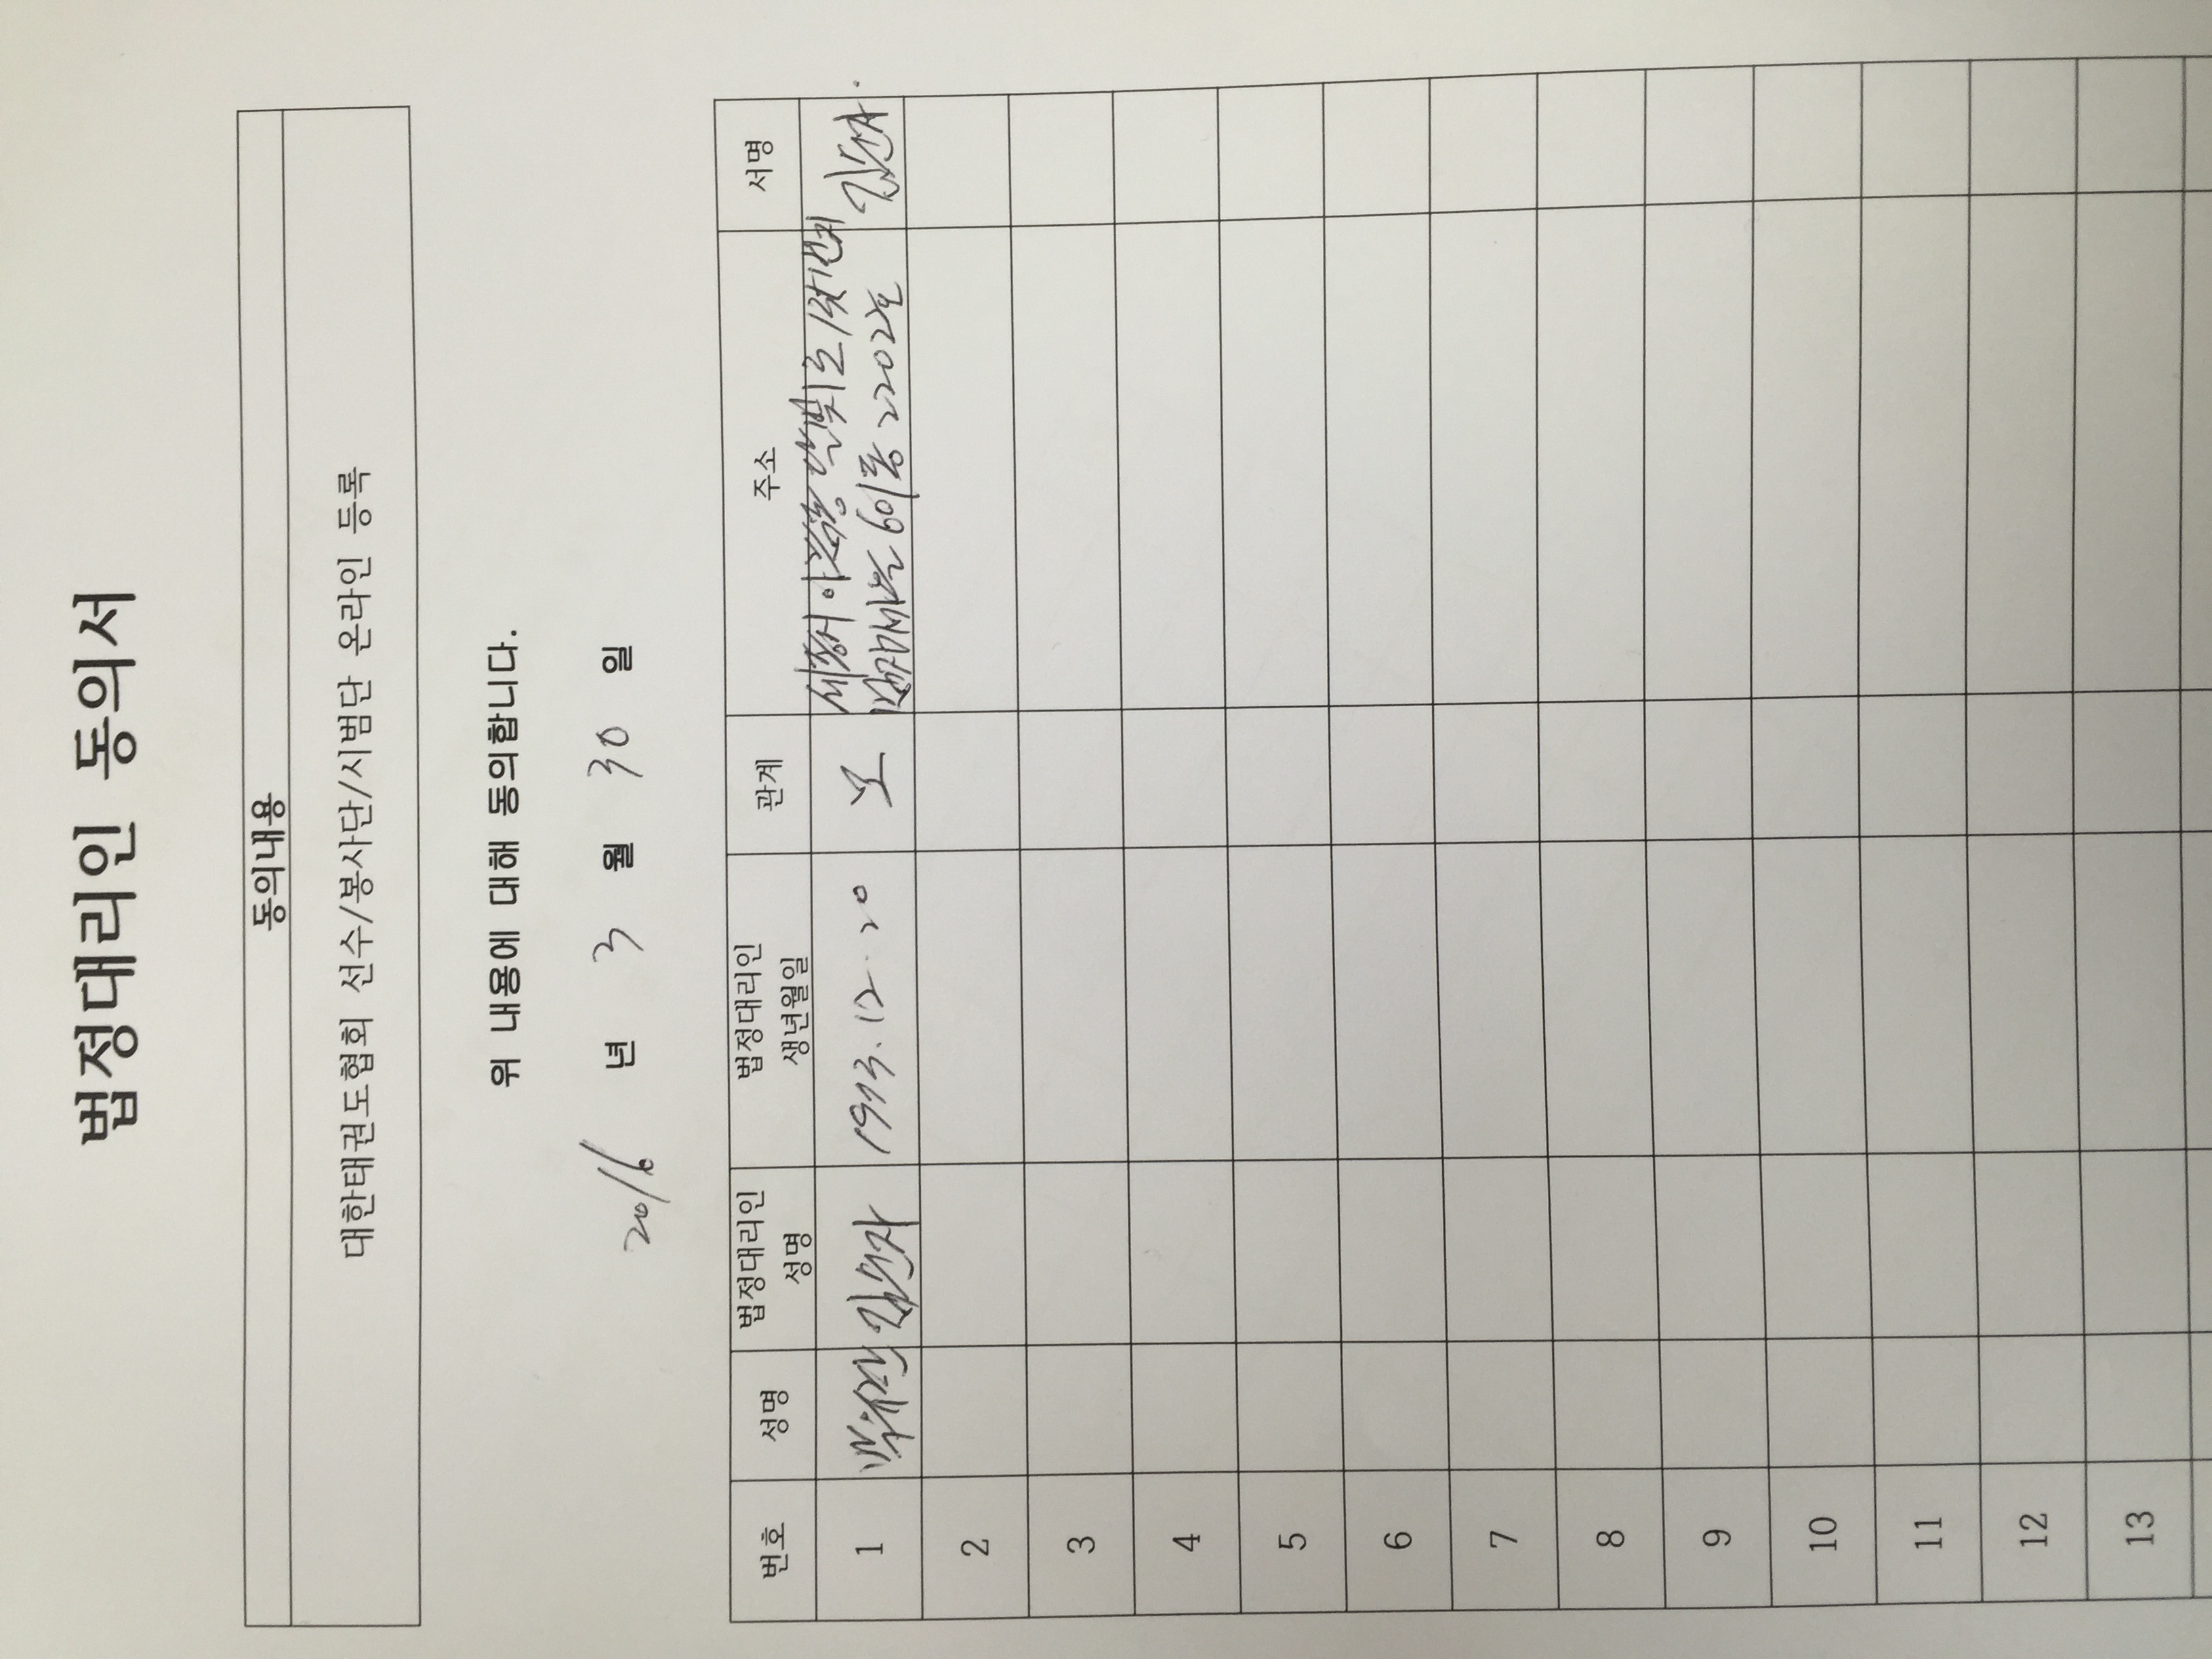 법정대리인 동의서
동의내용
대한태권도협회 선수/봉사단/시범단 온라인 등록
위 내용에 대해 동의합니다.
2016 년 3 월 30 일
번호 성명 법정대리인 성명 법정대리인 생년월일 관계 주소 서명
1 1973.12.20 모 세종시 601동 2202호
2
3
4
5
6
7
8
9
10
11
12
13